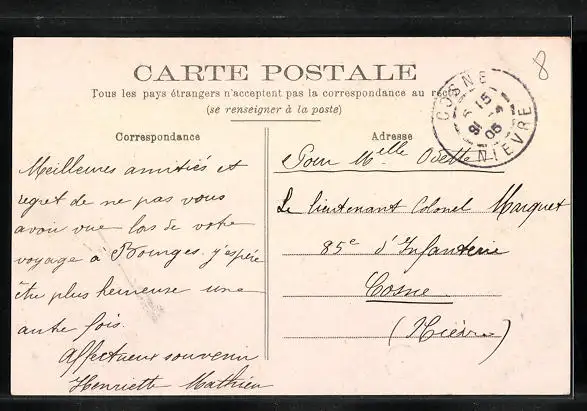 CARTE POSTALE
Tous les pays étrangers n'acceptent pas la correspondance au
(se renseigner à la poste)
Correspondance
Meilleures amitiés et
regret de ne pas vous
avoir vue lors de votre
voyage à Bourges. j'espère
être plus heureuse une
autre fois.
Affectueux souvenir
Henriette Mathieu
Adresse
Pour Melle Odette
Le lieutenant Colonel Marquet
85e d'Infanterie
Cosne
(Nièvre)
COSNE
15
31
05
NIEVRE
8